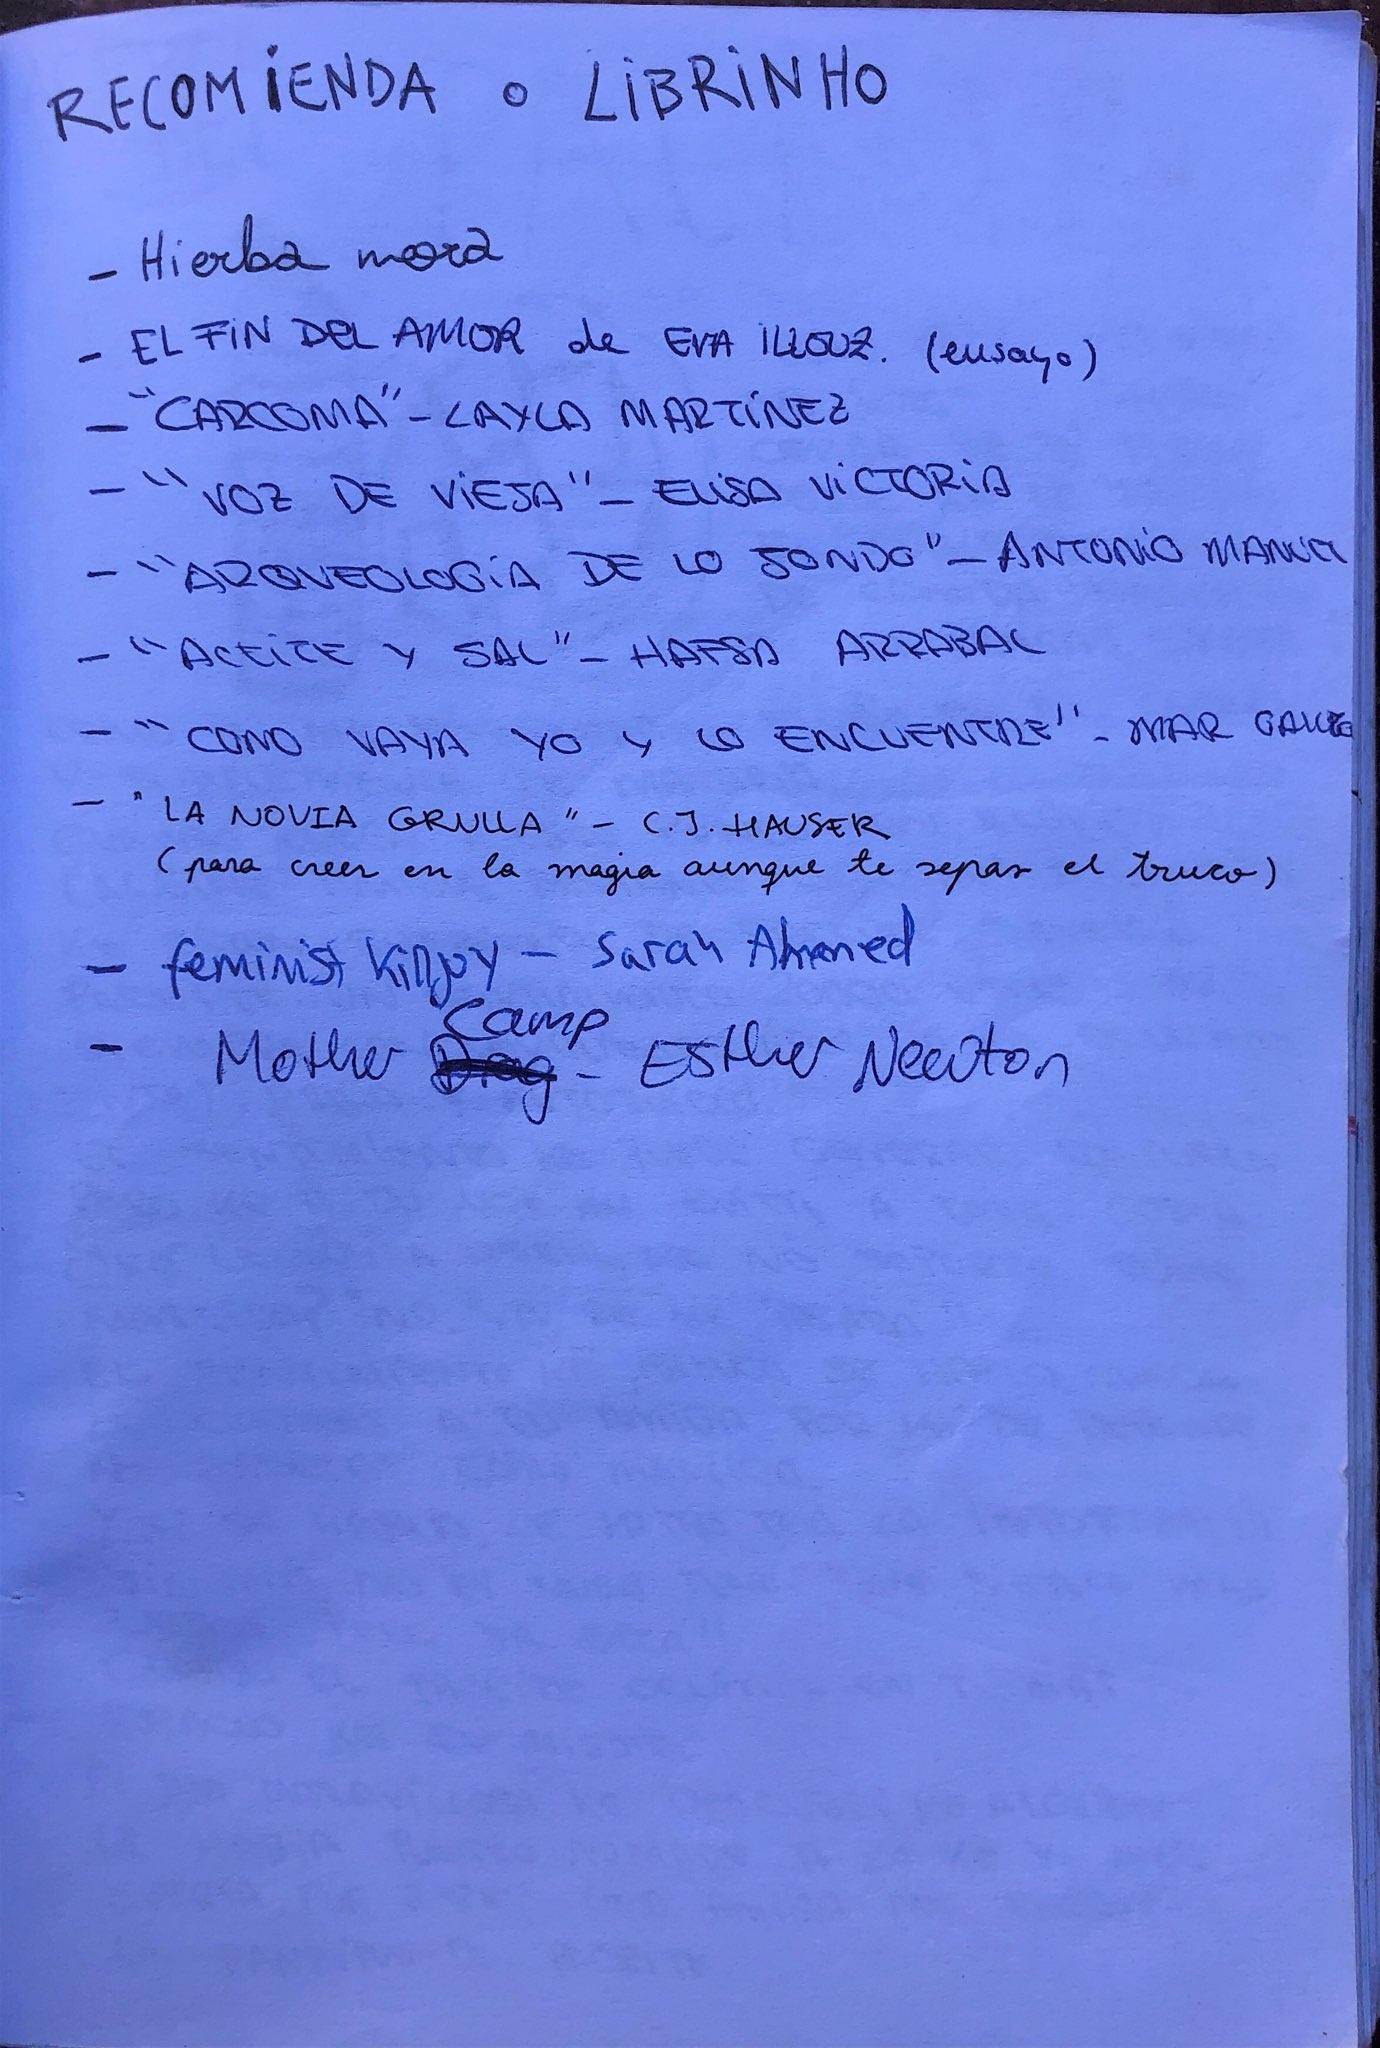 RECOMIENDA o LiBRiNHO
- Hierba mora
- EL FiN DEL AMOR de EVA ILLOUZ. (ensayo)
- "CARCOMA" - LAYLA MARTÍNEZ
- "VOZ DE VIEJA" - ELISA VICTORIA
- "ARQUEOLOGÍA DE LO JONDO" - ANTONIO MANUEL
- "ACEITE Y SAL" - HAFSA ARRABAL
- "COMO VAYA YO Y LO ENCUENTRE" - MAR GALLEGO
- "LA NOVIA GRULLA" - C.J. HAUSER
(para creer en la magia aunque te sepas el truco)
- feminist killjoy - Sarah Ahmed
- Mother Camp - Esther Newton